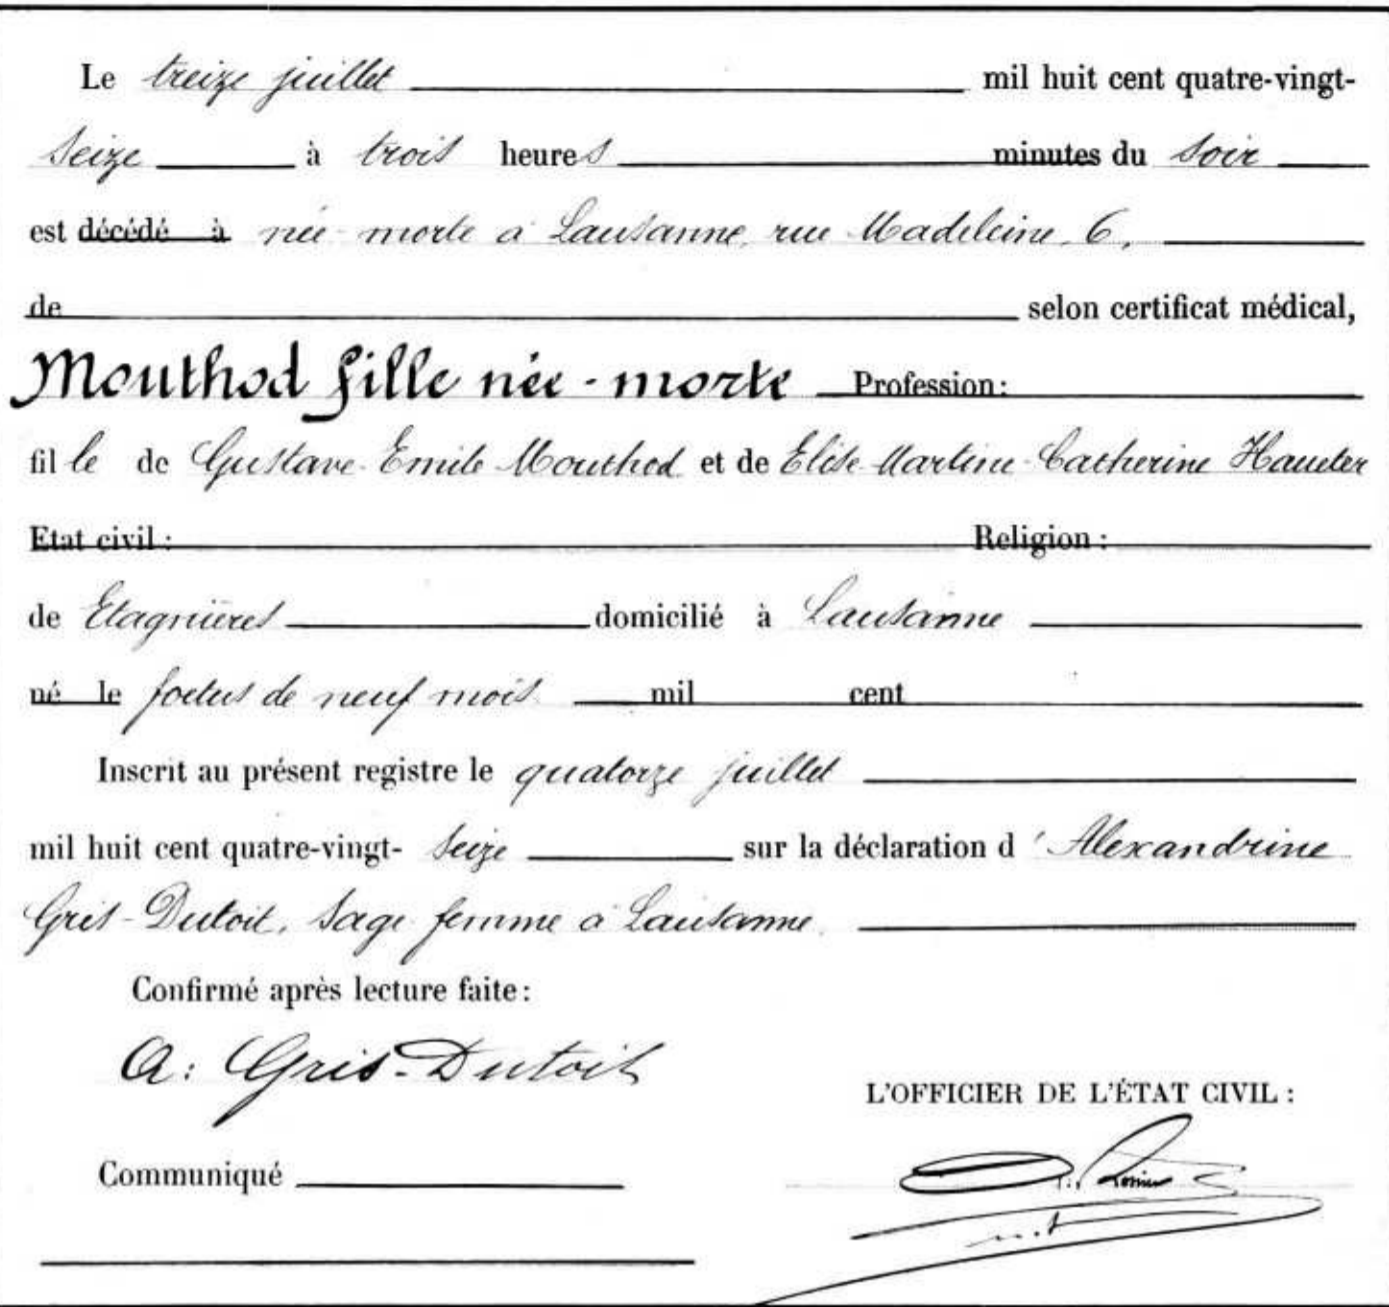 Le treize juillet mil huit cent quatre-vingt-
seize à trois heures minutes du soir
est décédé à née-morte à Lausanne, rue Madeleine, 6,
de selon certificat médical,
Mouthod fille née-morte Profession:
fille de Gustave-Emile Mouthod et de Elise-Martine-Catherine Haueter
Etat civil: Religion:
de Etagnières domicilié à Lausanne
né le foetus de neuf mois mil cent
Inscrit au présent registre le quatorze juillet
mil huit cent quatre-vingt- seize sur la déclaration d'Alexandrine
Gris-Dutoit, sage-femme à Lausanne.
Confirmé après lecture faite:
A: Gris-Dutoit
L'OFFICIER DE L'ÉTAT CIVIL:
Communiqué